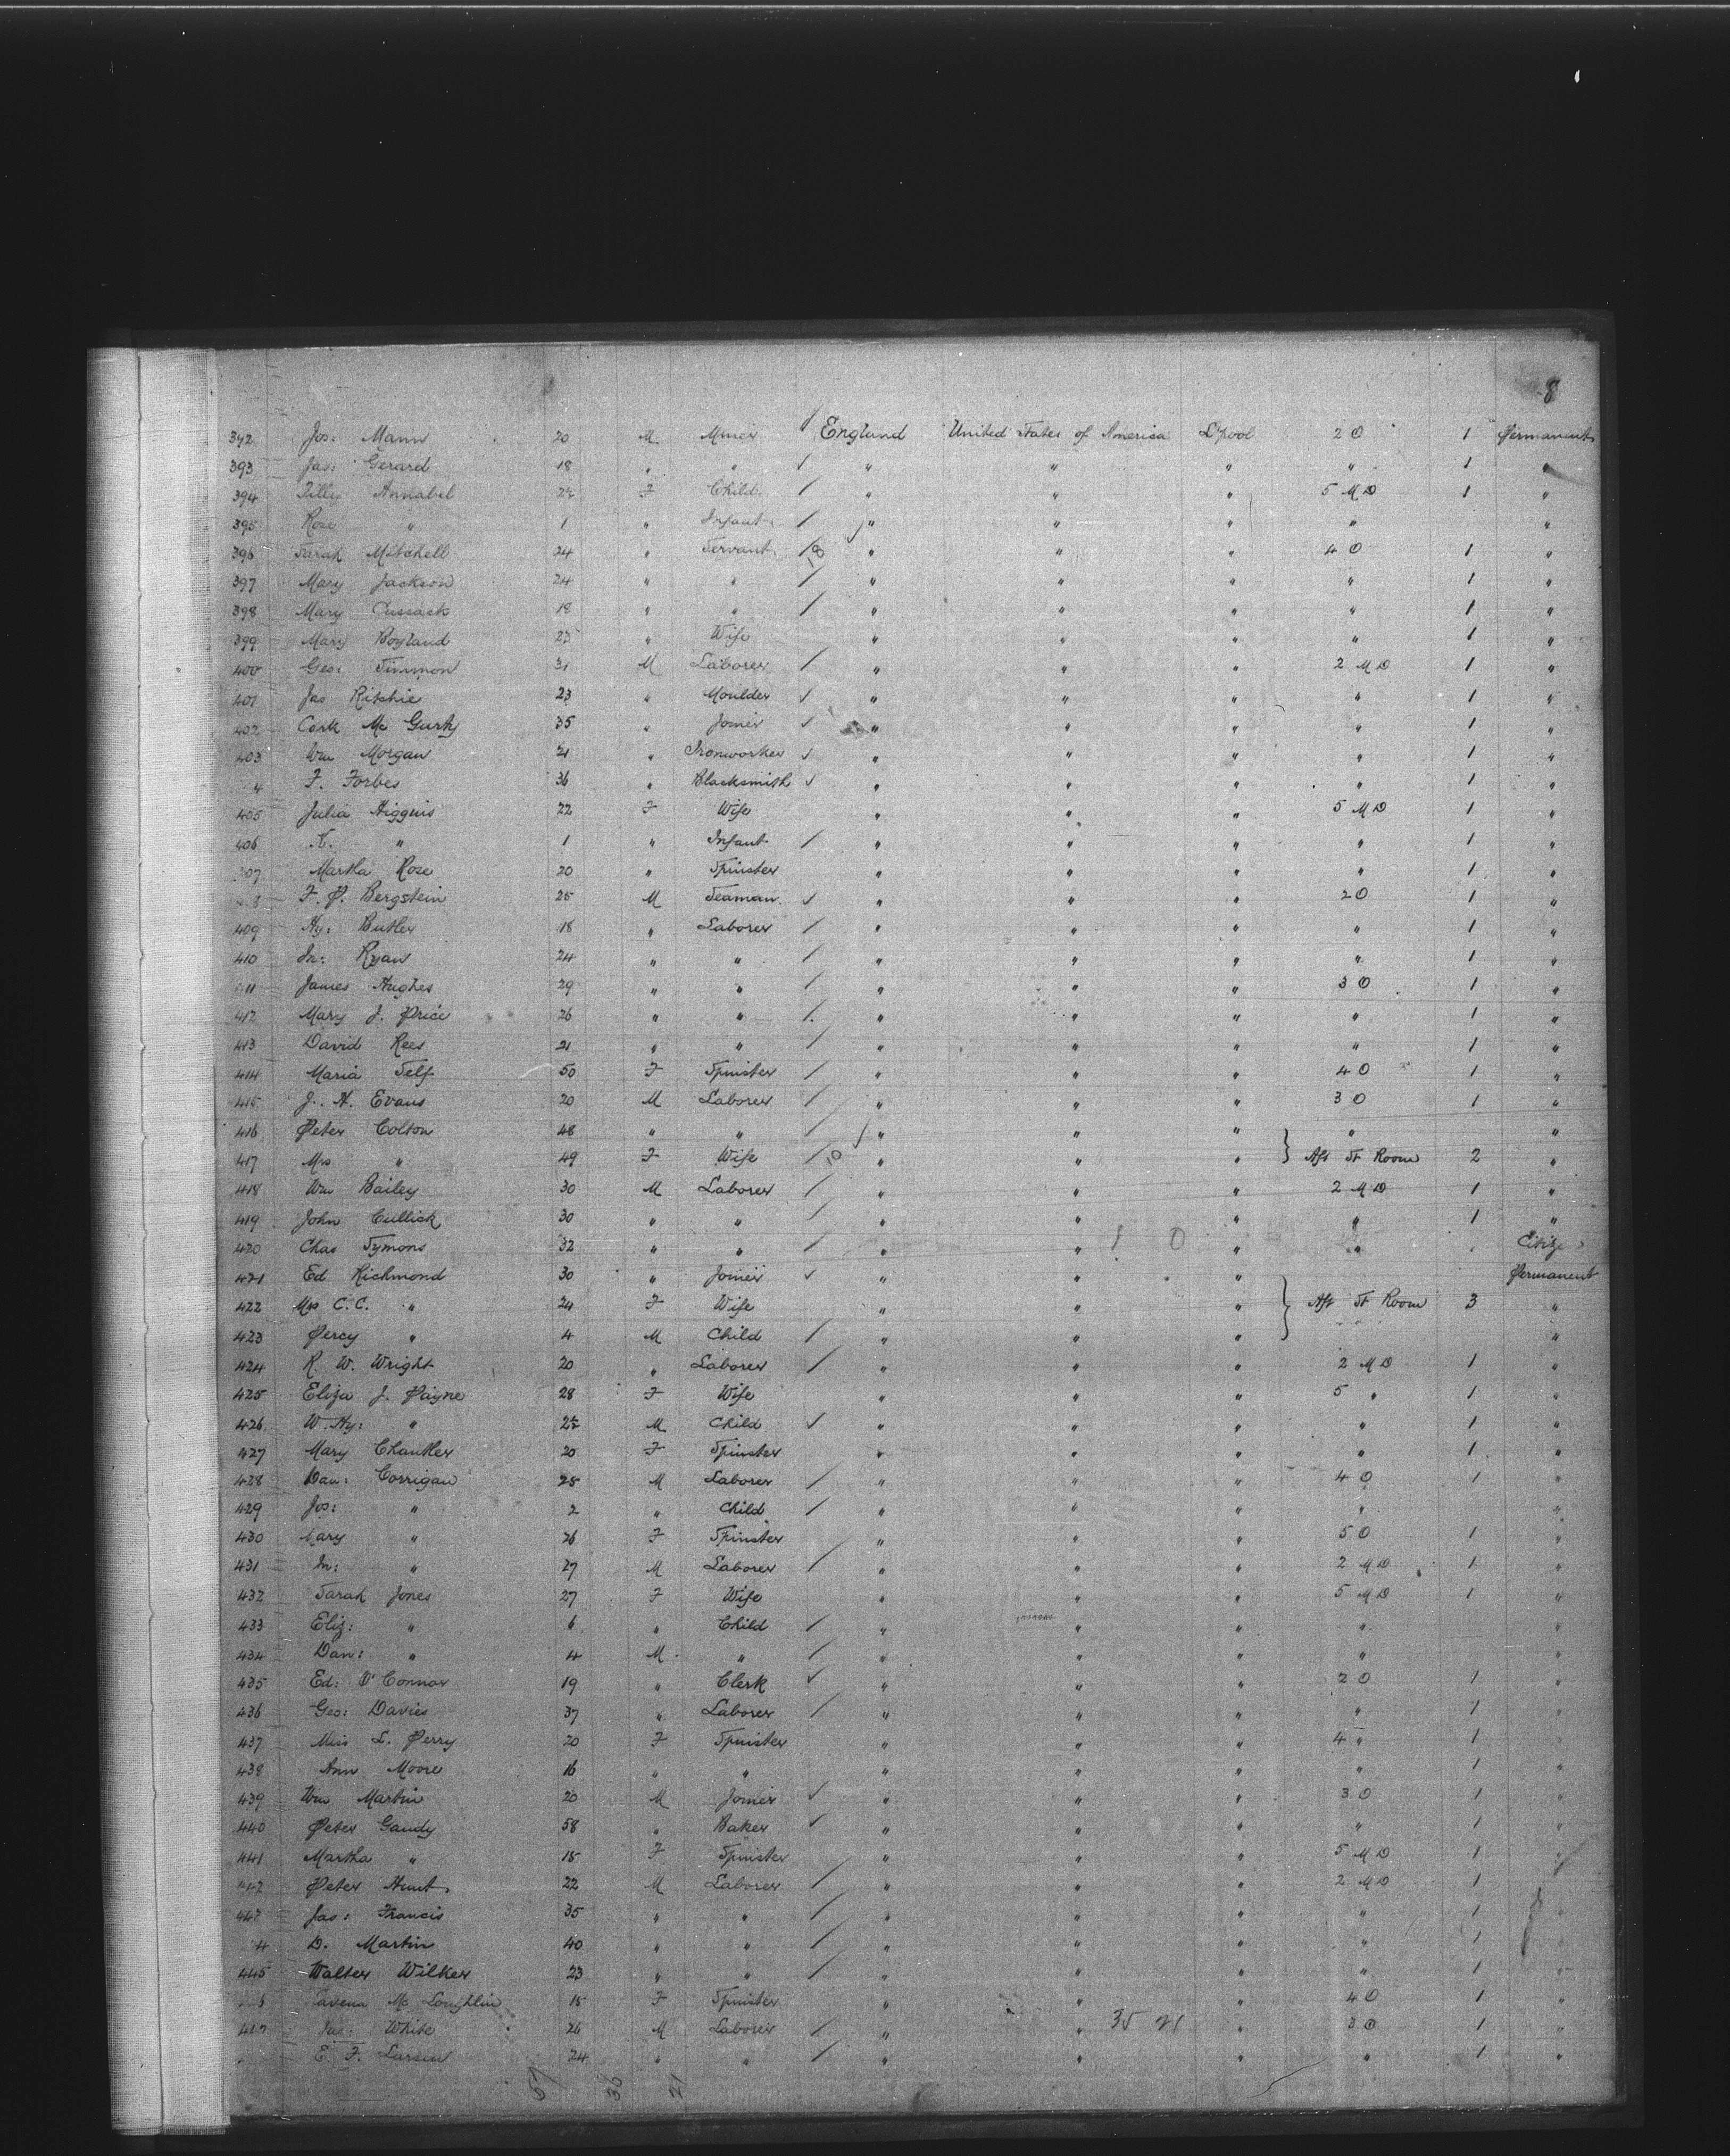 8
392 Jos: Mann 20 M Miner England United States of America L'pool 2 O 1 Permanent
393 Jas: Gerard 18 " " " " " " 1 "
394 Tilly Annabel 2½ F Child " " " 5 MD 1 "
395 Rose " 1 " Infant " " " " "
396 Sarah Mitchell 24 " Servant " " " 4 O 1 "
397 Mary Jackson 24 " " " " " " 1 "
398 Mary Cussack 18 " " " " " " 1 "
399 Mary Boyland 23 " Wife " " " " 1 "
400 Geo: Simmon 31 M Laborer " " " 2 MD 1 "
401 Jas Ritchie 23 " Moulder " " " " 1 "
402 Mc Gurk 35 " Joiner " " " " 1 "
403 Wm Morgan 21 " Ironworker " " " " 1 "
4 F. Forbes 36 " Blacksmith " " " " 1 "
405 Julia Higgins 22 F Wife " " " 5 MD 1 "
406 K. " 1 " Infant " " " " 1 "
407 Martha Rose 20 " Spinster " " " " 1 "
8 F. P. Bergstein 25 M Seaman " " " 2 O 1 "
409 Hy: Butler 18 " Laborer " " " " 1 "
410 Jn: Ryan 24 " " " " " " 1 "
411 James Hughes 29 " " " " " 3 O 1 "
412 Mary J. Price 26 " " " " " " 1 "
413 David Rees 21 " " " " " " 1 "
414 Maria Self 50 F Spinster " " " 4 O 1 "
415 J. H. Evans 20 M Laborer " " " 3 O 1 "
416 Peter Colton 48 " " " " " " "
417 Mrs " 49 F Wife 10 " " " Aft St Room 2 "
418 Wm Bailey 30 M Laborer " " " 2 MD 1 "
419 John Cullick 30 " " " " " " 1 "
420 Chas Symons 32 " " " " " " Citize
421 Ed Richmond 30 " Joiner " " " Permanent
422 Mrs C. C. " 24 F Wife " " " Aft St Room 3 "
423 Percy " 4 M Child " " " "
424 R. W. Wright 20 " Laborer " " " 2 MD 1 "
425 Eliza J. Payne 28 F Wife " " " 5 " 1 "
426 W. Hy: " 2½ M Child " " " " 1 "
427 Mary Chantler 20 F Spinster " " " " 1 "
438 Dan: Corrigan 25 M Laborer " " " 4 O 1 "
429 Jos: " 2 " Child " " " " "
430 Mary " 26 F Spinster " " " 5 O 1 "
431 Jn: " 27 M Laborer " " " 2 MD 1 "
432 Sarah Jones 27 F Wife " " " 5 MD 1 "
433 Eliz: " 6 " Child " " " " "
434 Dan: " 4 M " " " " " "
435 Ed: O'Connor 19 " Clerk " " " 2 O 1 "
436 Geo: Davies 37 " Laborer " " " " 1 "
437 Miss L. Perry 20 F Spinster " " " 4 " 1 "
438 Ann Moore 16 " " " " " " 1 "
439 Wm Martin 20 M Joiner " " " 3 O 1 "
440 Peter Gaudy 58 " Baker " " " " 1 "
441 Martha " 15 F Spinster " " " 5 MD 1 "
442 Peter Hunt 22 M Laborer " " " 2 MD 1 "
443 Jas: Francis 35 " " " " " " 1 "
4 D. Martin 40 " " " " " " 1 "
445 Walter Wilker 23 " " " " " " 1 "
Mc Loughlin 15 F Spinster " " " 4 O 1 "
447 Jas: White 26 M Laborer " " 35 21 " 3 O 1 "
E. F. Larsen 24 " " " " " " 1 "
57 36 21